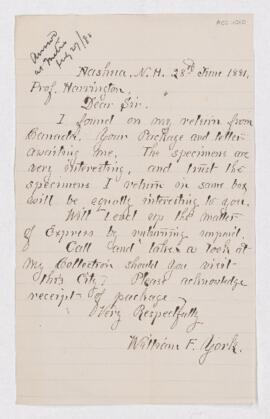 ACC-1010
July 27/81
Nashua, N.H. 28th June 1881.
Prof. Harrington,
Dear Sir.
I found on my return from
Canada, Your Package and letter
awaiting me. The specimens are
very interesting, and trust the
specimens I return in same box
will be equally interesting to you.
Will Level up the matter
of Express by returning unpaid.
Call and take a look at
my Collection should you visit
this City. Please acknowledge
receipt of package.
Very Respectfully
William F. York.